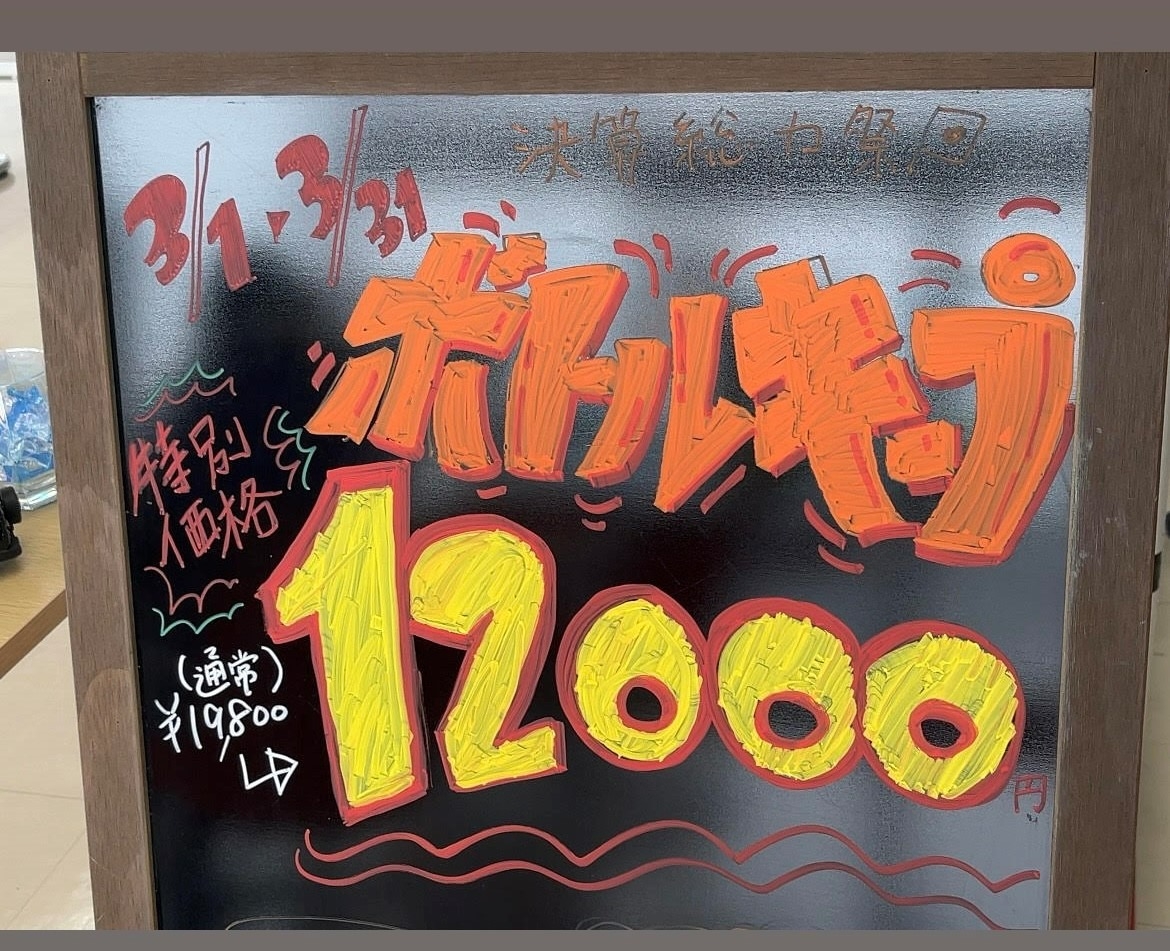 決算総力祭
3/1・3/31
ボトルキープ
特別
価格
12000円
(通常)
¥19,800